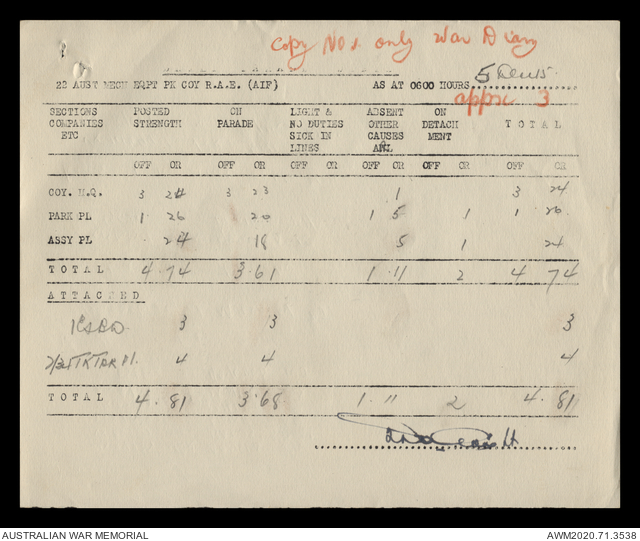 Copy No 1 only War Diary
22 AUST MECH EQPT PK COY R.A.E. (AIF) AS AT 0600 HOURS 5 Dec 45
appx 3
SECTIONS COMPANIES ETC POSTED STRENGTH ON PARADE LIGHT & NO DUTIES SICK IN LINES ABSENT OTHER CAUSES & AWL ON DETACH MENT T O T A L
OFF OR OFF OR OFF OR OFF OR OFF OR OFF OR
COY. H.Q. 3 24 3 23 1 3 24
PARK PL 1 26 20 1 5 1 1 26
ASSY PL 24 18 5 1 24
T O T A L 4 74 3 61 1 11 2 4 74
A T T A C H E D
3 3 3
4 4 4
T O T A L 4 81 3 68 1 11 2 4 81
AUSTRALIAN WAR MEMORIAL AWM2020.71.3538